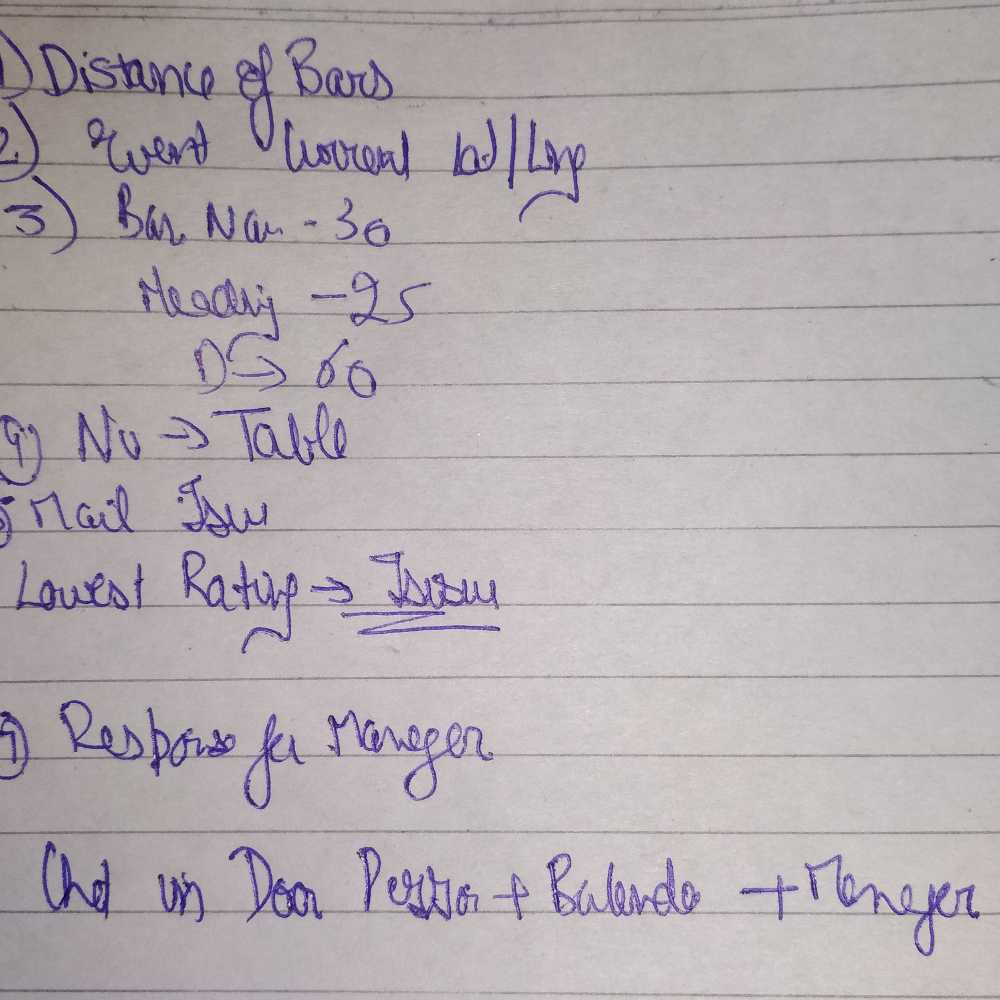 1) Distance of Bars
2) Event Current Lat/Long
3) Bar Nam - 30
Heading - 25
D → 60
4) No → Table
Mail Issu
Lowest Rating → Issue
Response for Maneger
Chat in Door Person + Balendo + Maneger